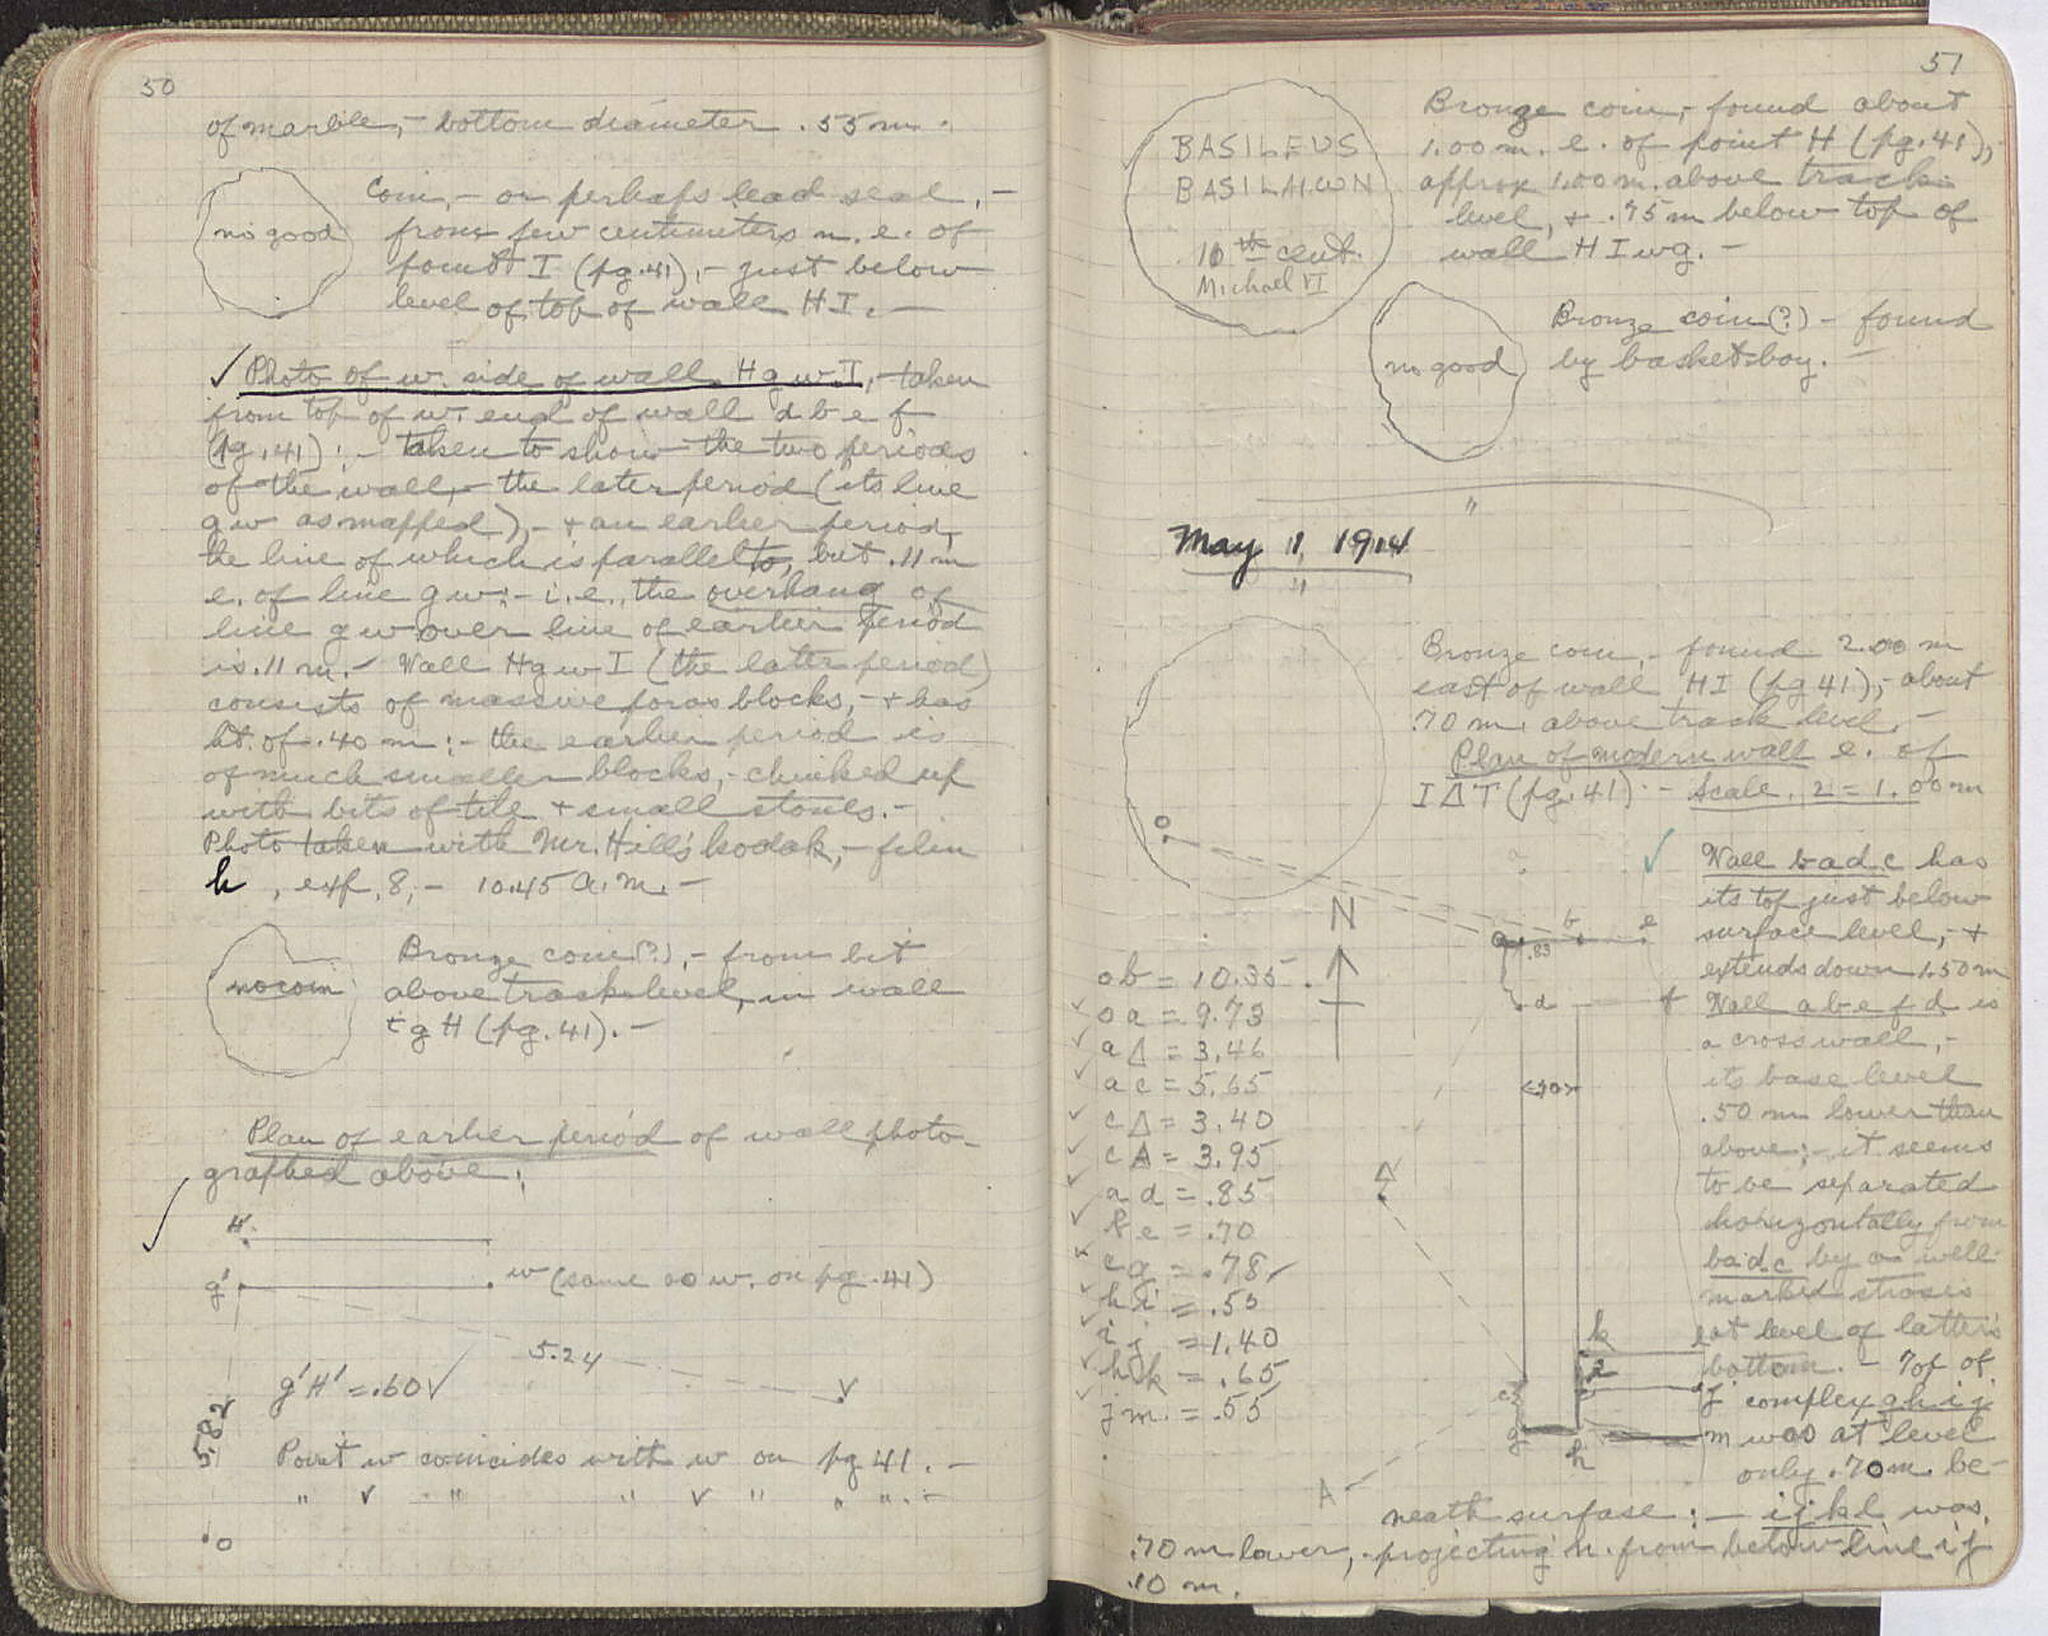 50
of marble, - bottom diameter .55 m.
no good
Coin, - or perhaps lead seal, -
from few centimeters n. e. of
point I (pg. 41), - just below
level of top of wall HI. -
✓ Photo of w. side of wall H g w I, - taken
from top of w. end of wall d b e f
(pg. 41) : - taken to show the two periods
of the wall, - the later period (its line
g w as mapped), - + an earlier period,
the line of which is parallel to, but .11 m
e. of line g w : - i. e., the overhang of
line g w over line of earlier period
is .11 m. - Wall H g w I (the later period)
consists of massive poros blocks, - + has
ht. of .40 m : - the earlier period is
of much smaller blocks, - chinked up
with bits of tile + small stones. -
Photo taken with Mr. Hill's kodak, - film
h , exp. 8, - 10.45 a. m. -
no coin
Bronze coin (?), - from bit
above track level, in wall
t g H (pg. 41). -
Plan of earlier period of wall photo-
graphed above :
✓
H'
g'
w (same as w. on pg. 41)
5.24
g'H' = .60 ✓
v
5.82
Point w coincides with w on pg 41. -
" v " " v " " ". -
o
51
BASILEUS
BASILAIWN
10th cent.
Michael VI
Bronze coin, - found about
1.00 m. e. of point H (pg. 41),
approx 1.00 m. above track
level, + .75 m below top of
wall H I w g. -
no good
Bronze coin (?) - found
by basket-boy. -
"
May 11, 1914
"
Bronze coin, - found 2.00 m
east of wall HI (pg 41), - about
.70 m. above track level. -
Plan of modern wall e. of
I Δ T (pg. 41) - Scale. 2 = 1.00 m
o
N
a
b
e
.83
d
f
✓ Wall b a d c has
its top just below
surface level, - +
extends down 1.50 m
Wall a b e f d is
a cross wall, -
its base level
.50 m lower than
above; - it seems
to be separated
horizontally from
b a d c by a well
marked stratis
at level of latter's
bottom. - Top of
complex g h i j
m was at level
only .70 m. be-
neath surfase : - i j k l was
.70 m lower, - projecting n. from below line i j
.10 m.
ob = 10.35
✓ oa = 9.73
✓ aΔ = 3.46
✓ ac = 5.65
✓ cΔ = 3.40
✓ cA = 3.95
✓ ad = .85
✓ be = .70
cg = .78
✓ hi = .55
✓ ij = 1.40
✓ hk = .65
✓ jm = .55
.70
Δ
k
j
c
g
h
m
A